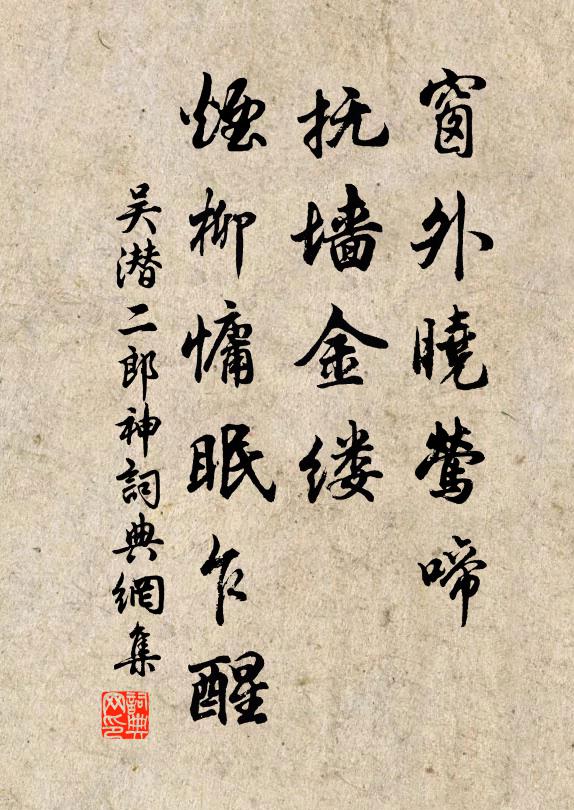 窗外曉鶯啼
抚墙金缕
煙柳慵眠乍醒
吴潛二郎神詞典網集
詞典网印